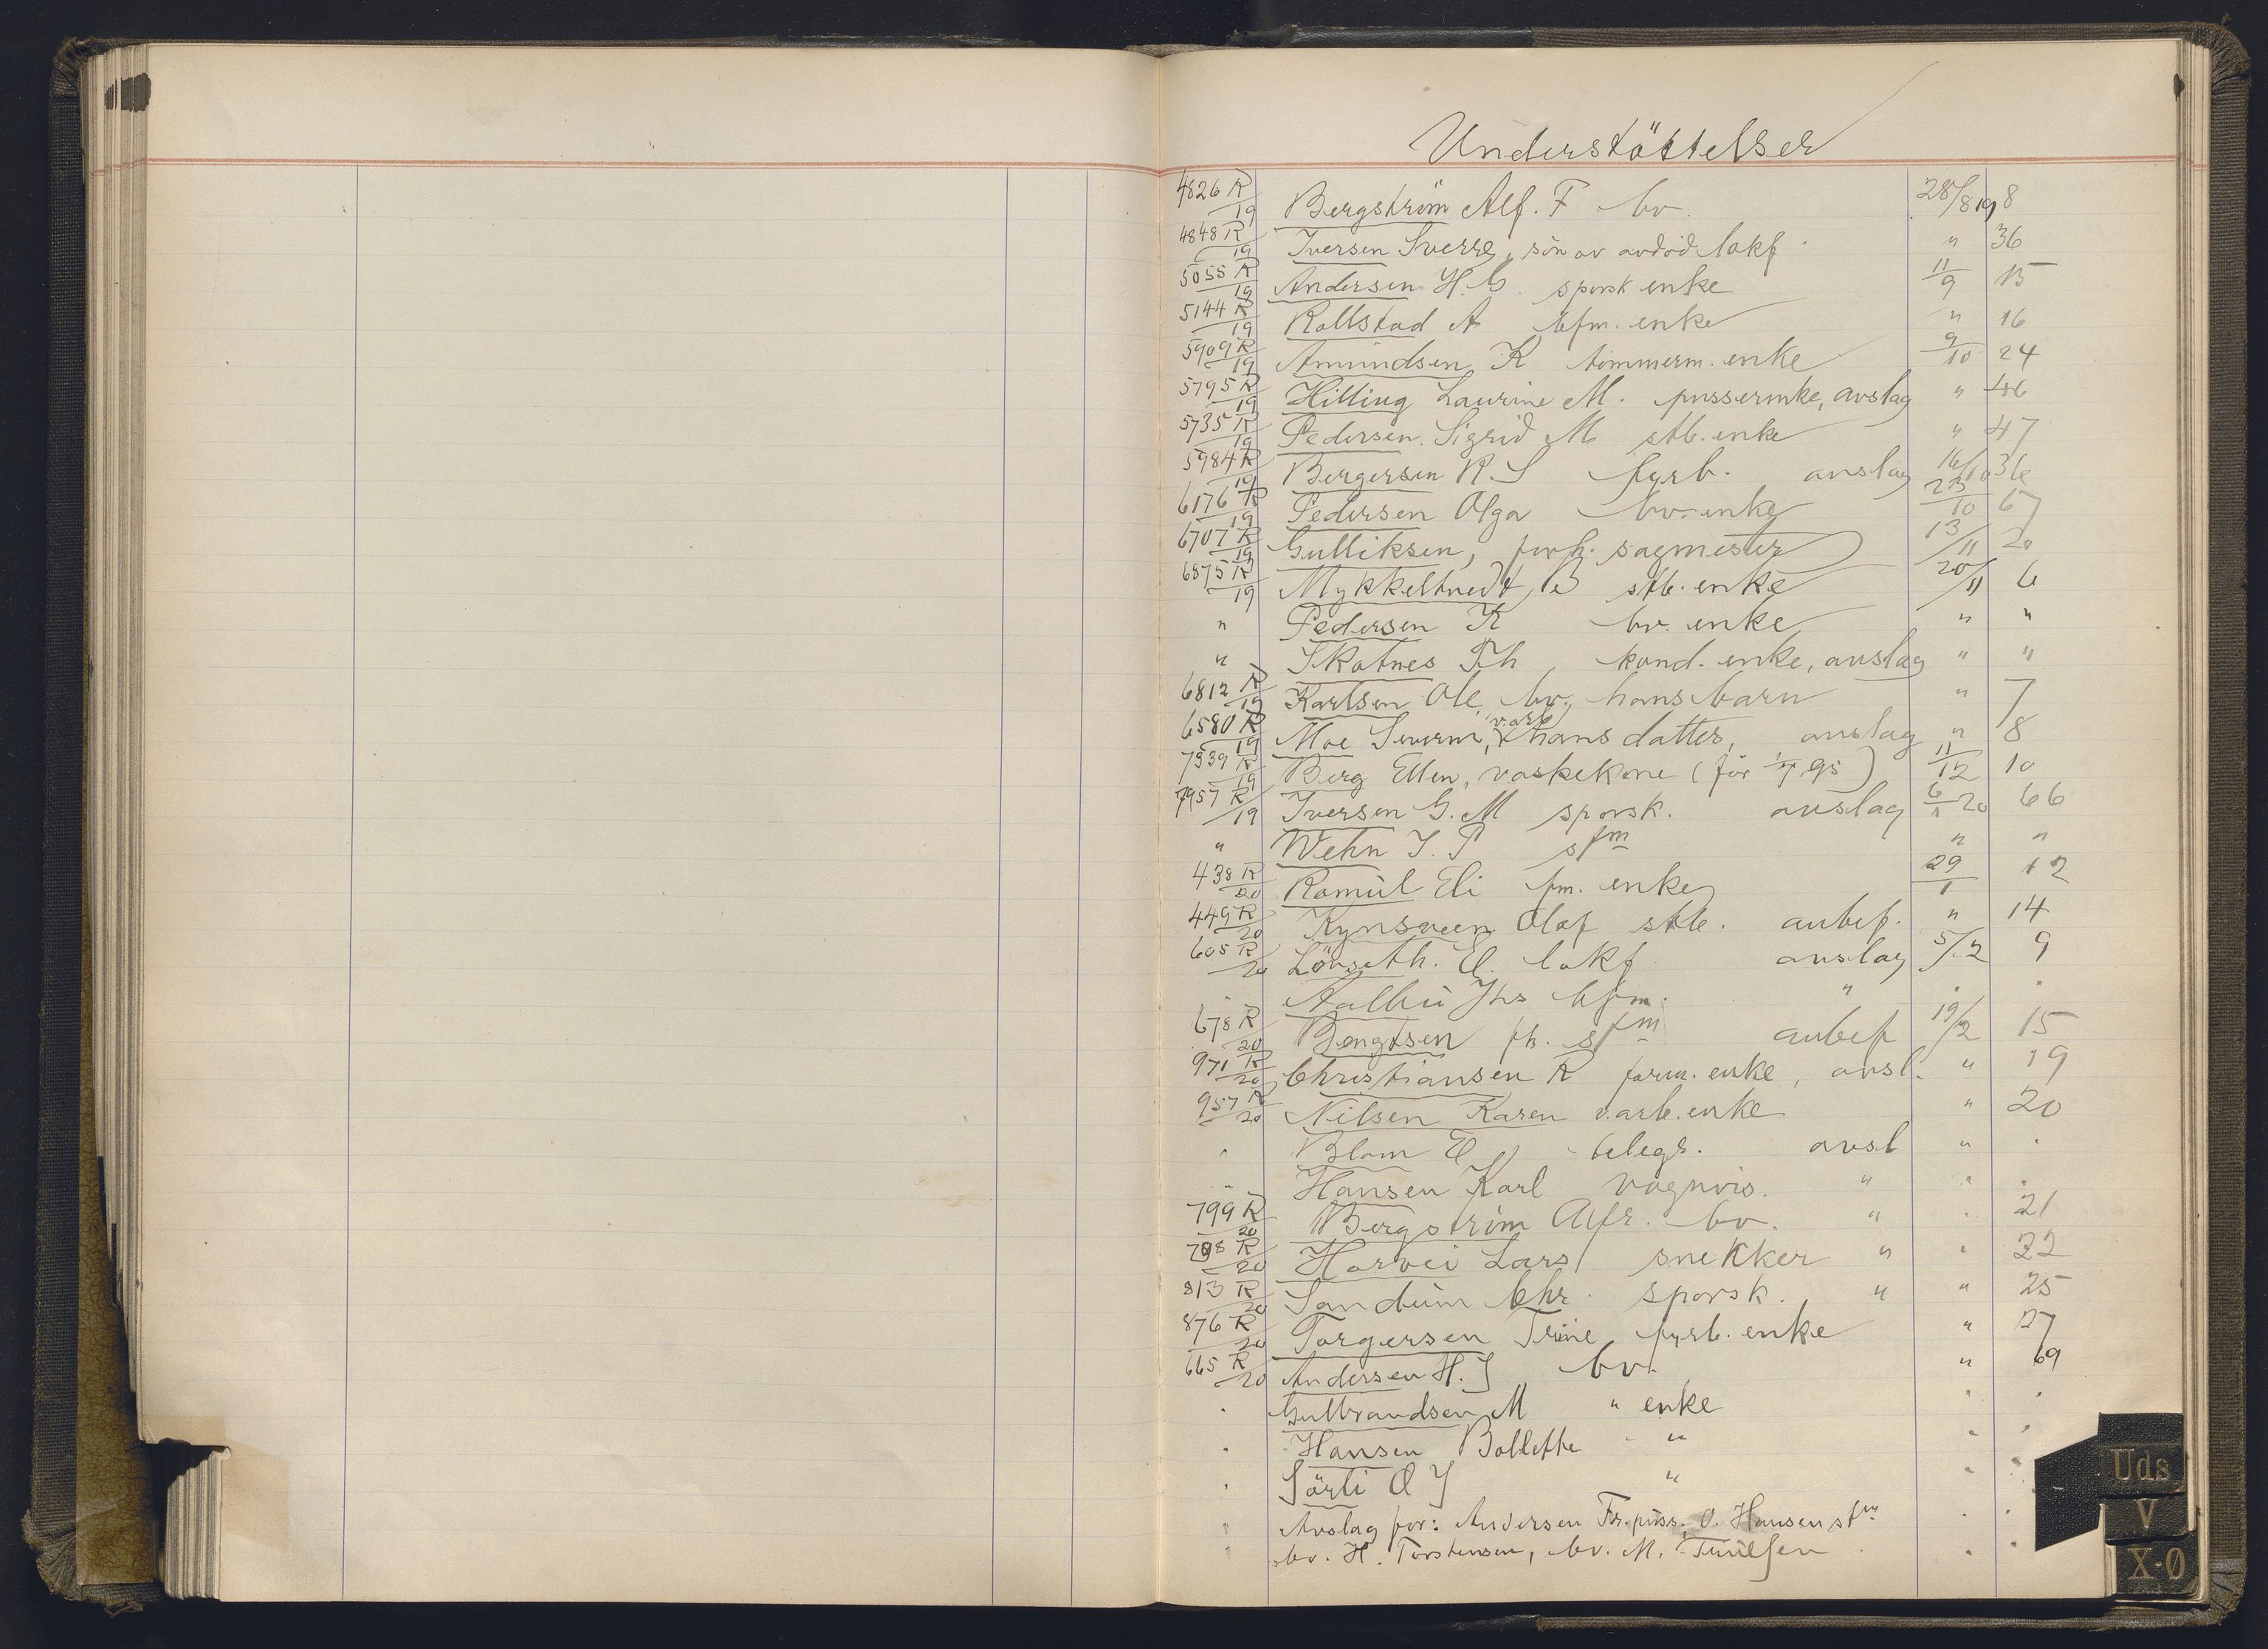 Understöttelser
4826 R/19 Bergström Alf. F bv. 28/8 19 8
4848 R/19 Iversen Sverre, sön av avdöd lokf. " 36
5055 R/19 Andersen H. C. sporsk enke 11/9 15
5144 R/19 Rollstad A bfm. enke " 16
5909 R/19 Amundsen K tömmerm. enke 9/10 24
5795 R/19 Hilling Laurine M. pusserenke, avslag " 46
5735 R/19 Pedersen Sigrid M stb. enke " 47
5984 R/19 Bergersen R. S fyrb. avslag 16/10 36
6176 R/19 Pedersen Olga bv. enke 23/10 67
6707 R/19 Gulliksen, forh. sagmester 13/11 20
6875 R/19 stb. enke 20/11 6
" Pedersen K bv. enke " "
" Skotnes Th, kond. enke, avslag " "
6812 R/19 Karlsen Ole bv. hans barn " 7
6580 R/19 Moe Severin, varb hans datter, avslag " 8
7339 R/19 Berg Ellen, vaskekone (för 1/7 95) 11/12 10
7957 R/19 Iversen G. M sporsk. avslag 6/1 20 66
" Wehn I. P sfm " "
438 R/20 Romul Eli fm. enke 29/1 12
449 R/20 Kynsveen Olaf stb. anbef. " 14
605 R/20 Lönseth. E. lokf avslag 5/2 9
" Aalbu Jhs bfm. " " "
678 R/20 Bengtsen fh. sfm anbef 19/2 15
971 R/20 Christiansen R form. enke, avsl. " 19
957 R/20 Nilsen Karen v.arb. enke " 20
" Blom E telegr. avsl " "
" Hansen Karl vognvis. " " "
799 R/20 Bergström Alfr. bv. " " 21
798 R/20 Horvei Lars snekker " " 22
813 R/20 Sandum Chr. sporsk. " " 25
876 R/20 Torgersen Trine fyrb. enke " 27
665 R/20 Andersen H. J bv. " 69
" Gulbrandsen M " enke " "
" Hansen Bollette " " " "
" Sörli O J " " "
" Avslag for: Andersen Fr. puss. O. Hansen sfm " "
" bv. H. Torstensen, bv. M. " "
Uds
V
X-Ø